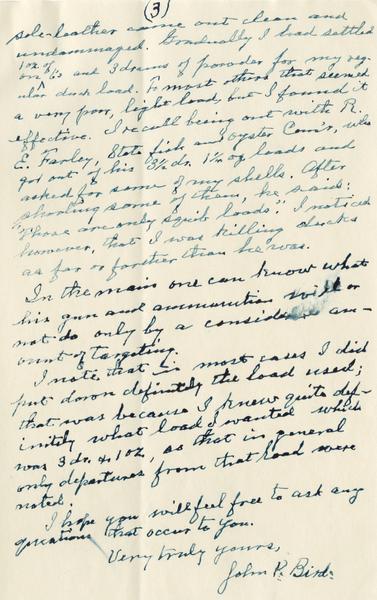 (3)
sole-leather came out clean and
undammaged. Gradually I had settled
1 oz. of
on 6's and 3 drams of powder for my reg-
ular duck load. To most others that seemed
a very poor, light load, but I found it
effective. I recall being out with R.
E. Farley, State Fish and Oyster Com'r, who
got out of his 3½ dr. 1¼ oz loads and
asked for some of my shells. After
shooting some of them, he said:
"Those are only squib loads." I noticed
however, that I was killing ducks
as far or farther than he was.
In the main one can know what
his gun and ammunition will or
not do only by a considerable am-
ount of targeting.
I note that in most cases I did
put down definitely the load used;
that was because I knew quite def-
initely what load I wanted which
was 3 dr. & 1 oz, so that in general
only departures from that load were
noted.
I hope you will feel free to ask any
questions that occur to you.
Very truly yours,
John P. Bird.